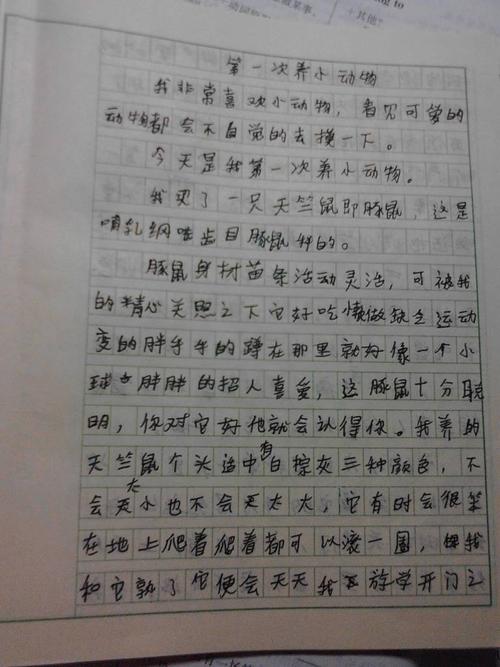 第一次养小动物
我非常喜欢小动物，看见可爱的
动物都会不自觉的去摸一下。
今天是我第一次养小动物。
我买了一只天竺鼠即豚鼠，这是
哺乳纲啮齿目豚鼠科的。
豚鼠身材苗条活动灵活，可被我
的精心关照之下它好吃懒做缺乏运动
变的胖乎乎的蹲在那里就好像一个小
球胖胖的招人喜爱，这豚鼠十分聪
明，你对它好他就会认得你。我养的
天竺鼠个头适中有白棕灰三种颜色，不
会太小也不会太大，它有时会很笨
在地上爬着爬着都可以滚一圈，
和它熟了它便会天天我放学开门之